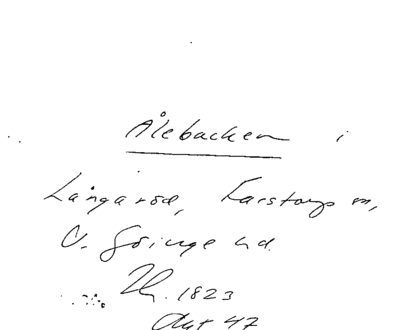 Ålebacken i
Långaröd, Farstorps sn,
V. Göinge hd.
Th. 1823
Akt 47